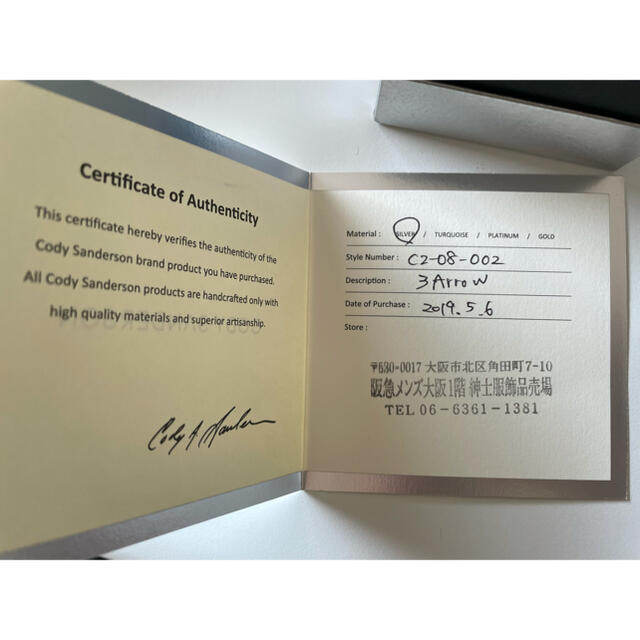 Certificate of Authenticity
This certificate hereby verifies the authenticity of the
Cody Sanderson brand product you have purchased.
All Cody Sanderson products are handcrafted only with
high quality materials and superior artisanship.
Cody A. Sanderson
Material : SILVER / TURQUOISE / PLATINUM / GOLD
Style Number : C2-08-002
Description : 3 Arrow
Date of Purchase : 2019.5.6
Store :
〒530-0017 大阪市北区角田町7-10
阪急メンズ大阪1階 紳士服飾品売場
TEL 06-6361-1381